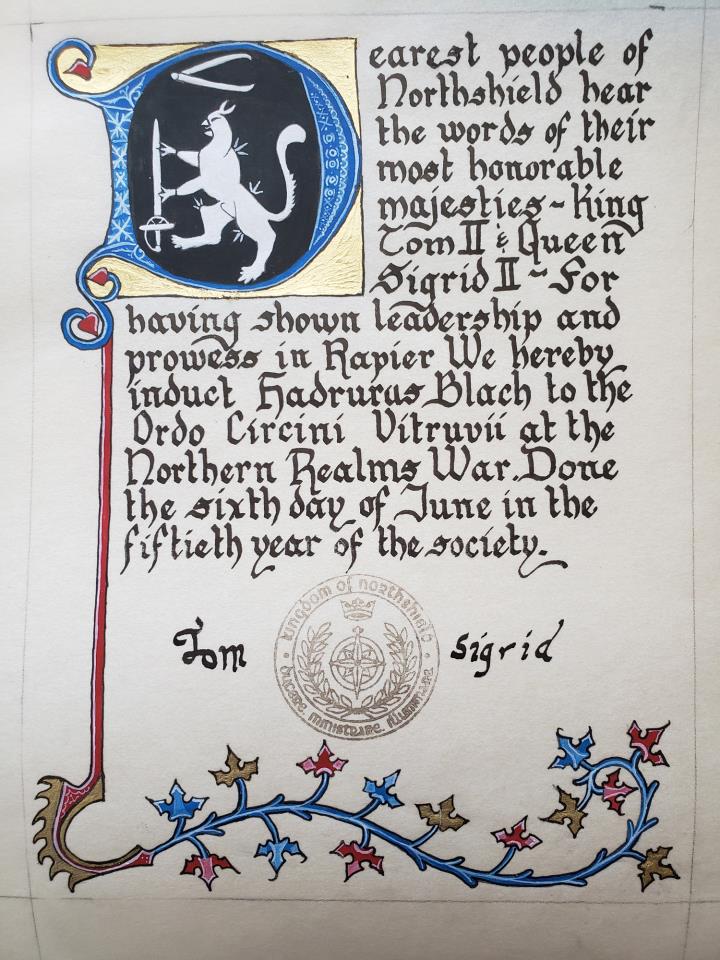 Dearest people of
Northshield hear
the words of their
most honorable
majesties~King
Tom II & Queen
Sigrid II~For
having shown leadership and
prowess in Rapier We hereby
induct Hadruras Blach to the
Ordo Circini Vitruvii at the
Northern Realms War. Done
the sixth day of June in the
fiftieth year of the society.
Tom
Sigrid
kingdom of northshield
ducere. ministrare. illuminare